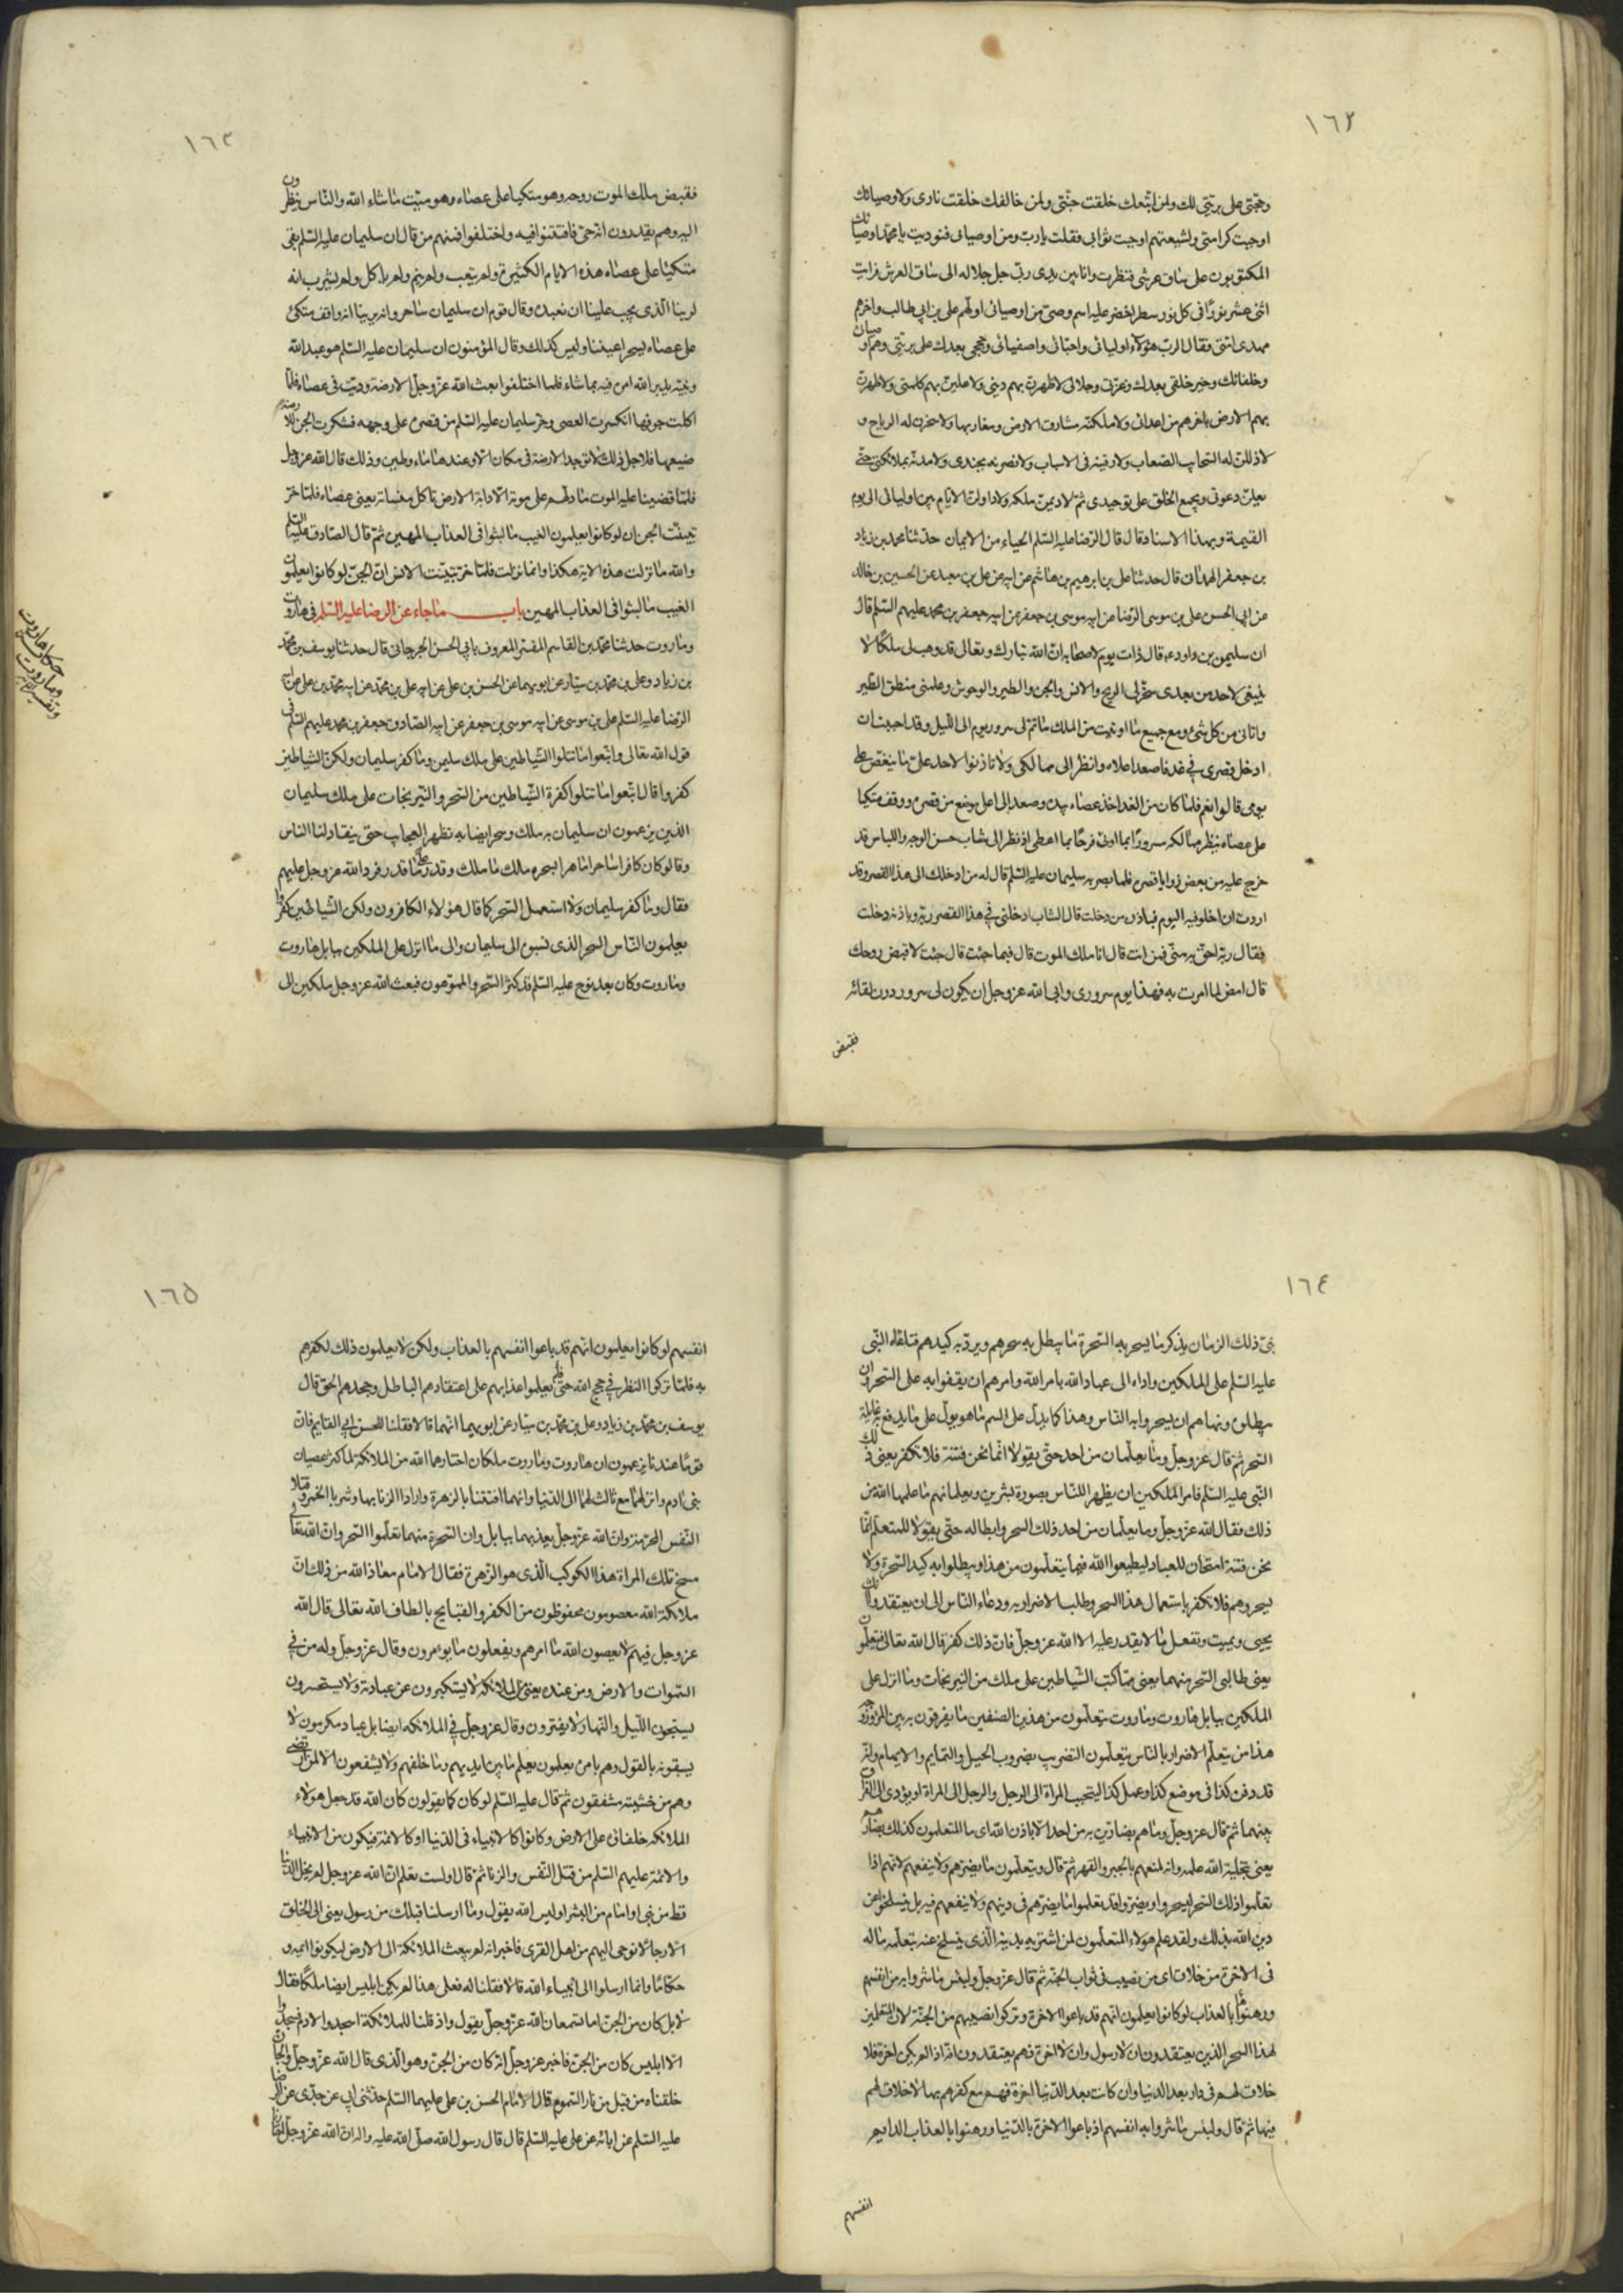 ١٦٢
وحجتي على بريتي لك ولمن اتبعك خلقت جنتي ولمن خالفك خلقت ناري ولاوصيائك
اوجبت كرامتي ولشيعتهم اوجبت ثوابي فقلت يارب ومن اوصيائي فنوديت يا محمد اوصيائك
المكتوبون على ساق عرشي فنظرت وانا بين يدي ربي جل جلاله الى ساق العرش فرايت
اثنى عشر نورًا في كل نور سطر اخضر عليه اسم وصي من اوصيائي اولهم علي بن ابي طالب واخرهم
مهدي امتي فقال الرب هؤلاء اوليائي واحبائي واصفيائي وحججي بعدك على بريتي وهم اوصياؤك
وخلفائك وخير خلقي بعدك وعزتي وجلالي لاظهرن بهم ديني ولاعلين بهم كلمتي ولاطهرن
بهم الارض باخرهم من اعدائي ولاملكنه مشارق الارض ومغاربها ولاسخرن له الرياح و
لاذللن له السحاب الصعاب ولارقينه في الاسباب ولانصرنه بجندي ولامدنه بملائكتي حتى
يعلن دعوتي ويجمع الخلق على توحيدي ثم لاديمن ملكه ولاداولن الايام بين اوليائي الى يوم
القيمة وبهذا الاسناد قال قال الرضا عليه السلم الحياء من الايمان حدثنا محمد بن زياد
بن جعفر الهمداني قال حدثنا علي بن ابراهيم بن هاشم عن ابيه عن علي بن معبد عن الحسين بن خالد
عن ابي الحسن علي بن موسى الرضا عن ابيه موسى بن جعفر عن ابيه جعفر بن محمد عليهم السلم قال
ان سليمن بن داود ع قال ذات يوم لاصحابه ان الله تبارك وتعالى قد وهب لي ملكًا لا
ينبغي لاحد من بعدي سخر لي الريح والانس والجن والطير والوحوش وعلمني منطق الطير
واتاني من كل شئ ومع جميع ما اوتيت من الملك ما تم لي سرور يوم الى الليل وقد احببت ان
ادخل قصري في غد فاصعد اعلاه وانظر الى ممالكي ولا تاذنوا لاحد علي ما ينغص علي
يومي قالوا نعم فلما كان من الغد اخذ عصاه بيده وصعد الى اعلى موضع من قصره ووقف متكيا
على عصاه ينظر ممالكه سرورًا بما اوتي فرحًا بما اعطي اذ نظر الى شاب حسن الوجه واللباس قد
خرج عليه من بعض زوايا قصره فلما بصر به سليمان عليه السلم قال له من ادخلك الى هذا القصر وقد
اردت ان اخلو فيه اليوم فباذن من دخلت قال الشاب ادخلني في هذا القصر ربه وباذنه دخلت
فقال ربه احق به مني فمن انت قال انا ملك الموت قال فيما جئت قال جئت لاقبض روحك
قال امض لما امرت به فهذا يوم سروري وابى الله عز وجل ان يكون لي سرور دون لقائه
فقبض
١٦٣
فقبض ملك الموت روحه وهو متكيا على عصاه وهو ميت ما شاء الله والناس ينظرون
اليه وهم يقدرون انه حي فافتتنوا فيه واختلفوا فمنهم من قال ان سليمان عليه السلم بقى
متكئا على عصاه هذه الايام الكثيرة ولم يتعب ولم ينم ولم ياكل ولم يشرب انه
لربنا الذي يجب علينا ان نعبده وقال قوم ان سليمان ساحر وانه يرينا انه واقف متكئ
على عصاه يسحر اعيننا وليس كذلك وقال المؤمنون ان سليمان عليه السلم هو عبد الله
ونبيه يدبر الله امره فيه بما شاء فلما اختلفوا بعث الله عز وجل الارضة ودبت في عصاه فلما
اكلت جوفها انكسرت العصى وخر سليمان عليه السلم من قصره على وجهه فشكرت الجن للارضة
صنيعها فلاجل ذلك لا توجد الارضة في مكان الا وعندها ماء وطين وذلك قال الله عز وجل
فلما قضينا عليه الموت ما دلهم على موته الا دابة الارض تاكل منساته يعني عصاه فلما خر
تبينت الجن ان لو كانوا يعلمون الغيب ما لبثوا في العذاب المهين ثم قال الصادق عليه السلم
والله ما نزلت هذه الاية هكذا وانما نزلت فلما خر تبينت الانس ان الجن لو كانوا يعلمون
الغيب ما لبثوا في العذاب المهين باب ما جاء عن الرضا عليه السلم في هاروت
وماروت حدثنا محمد بن القاسم المفسر المعروف بابي الحسن الجرجاني قال حدثنا يوسف بن محمد
بن زياد وعلي بن محمد بن سيار عن ابويهما عن الحسن بن علي عن ابيه علي بن محمد عن ابيه محمد بن علي عن ابيه
الرضا عليه السلم علي بن موسى عن ابيه موسى بن جعفر عن ابيه الصادق جعفر بن محمد عليهم السلم في
قول الله تعالى واتبعوا ما تتلوا الشياطين على ملك سليمن وما كفر سليمان ولكن الشياطين
كفروا قال اتبعوا ما تتلوا كفرة الشياطين من السحر والنيرنجات على ملك سليمان
الذين يزعمون ان سليمان به ملك ونحن ايضا به نظهر العجايب حتى ينقاد لنا الناس
وقالوا كان كافرا ساحرا ماهرا بسحره ملك ما ملك وقدر على ما قدر فرد الله عز وجل عليهم
فقال وما كفر سليمان ولا استعمل السحر كما قال هؤلاء الكافرون ولكن الشياطين كفروا
يعلمون الناس السحر الذي نسبوه الى سليمان والى ما انزل على الملكين ببابل هاروت
وماروت وكان بعد نوح عليه السلم قد كثر السحر والمموهون فبعث الله عز وجل ملكين الى
حكاية هاروت
وماروت
١٦٤
نبي ذلك الزمان بذكر ما يسحر به السحرة ما يبطل به سحرهم ويرد به كيدهم فتلقاه النبي
عليه السلم على الملكين واداه الى عباد الله بامر الله وامرهم ان يقفوا به على السحر وان
يبطلوه ونهاهم ان يسحروا به الناس وهذا كما يدل على السم ما هو يدل على ما يدفع به غايلة
السحر ثم قال عز وجل وما يعلمان من احد حتى يقولا انما نحن فتنة فلا تكفر يعني ذلك
النبي عليه السلم فامر الملكين ان يظهرا للناس بصورة بشرين ويعلمانهم ما علمها الله من
ذلك فقال الله عز وجل وما يعلمان من احد ذلك السحر وابطاله حتى يقولا للمتعلم انما
نحن فتنة امتحان للعباد ليطيعوا الله فيما يتعلمون من هذا ويبطلوا به كيد السحرة ولا
يسحروهم فلا تكفر باستعمال هذا السحر وطلب الاضرار به ودعاء الناس الى ان يعتقدوا انك
يحيى ويميت وتفعل ما لا يقدر عليه الا الله عز وجل فان ذلك كفر قال الله تعالى فيتعلمون
يعني طالبي السحر منهما يعني مما كتب الشياطين على ملك من النيرنجات وما انزل على
الملكين ببابل هاروت وماروت يتعلمون من هذين الصنفين ما يفرقون به بين المرء وزوجه
هذا من يتعلم الاضرار بالناس يتعلمون التضريب بضروب الحيل والتمايم والايهام وانه
قد دفن كذا في موضع كذا وعمل كذا ليتحبب المراة الى الرجل والرجل الى المراة او يؤدي الى الفراق
بينهما ثم قال عز وجل وما هم بضارين به من احد الا باذن الله اي ما المتعلمون كذلك بضارين
يعني بتخلية الله علمه وانه لمنعهم بالجبر والقهر ثم قال ويتعلمون ما يضرهم ولا ينفعهم لانهم اذا
تعلموا ذلك السحر ليسحروا ويضروا فقد تعلموا ما يضرهم في دينهم ولا ينفعهم فيه بل ينسلخوا عن
دين الله بذلك ولقد علم هؤلاء المتعلمون لمن اشتريه بدينه الذي ينسلخ عنه بتعلمه ما له
في الاخرة من خلاق اي من نصيب في ثواب الجنة ثم قال عز وجل ولبئس ما شروا به من انفسهم
ورهنوها بالعذاب لو كانوا يعلمون انهم قد باعوا الاخرة وتركوا نصيبهم من الجنة لان المتعلمين
لهذا السحر الذين يعتقدون ان لا رسول وان لا اخرة فهم يعتقدون انه اذا لم يكن اخرة فلا
خلاق لهم في دار بعد الدنيا وان كانت بعد الدنيا اخرة فهم مع كفرهم بها لا خلاق لهم
فيها ثم قال ولبئس ما شروا به انفسهم اذ باعوا الاخرة بالدنيا ورهنوا بالعذاب الدايم
انفسهم
١٦٥
انفسهم لو كانوا يعلمون انهم قد باعوا انفسهم بالعذاب ولكن لا يعلمون ذلك لكفرهم
به فلما تركوا النظر في حجج الله حتى يعلموا عذابهم على اعتقادهم الباطل وجحدهم الحق قال
يوسف بن محمد بن زياد وعلي بن محمد بن سيار عن ابويهما انهما قالا فقلنا للحسن ابي القايم فان
قومًا عندنا يزعمون ان هاروت وماروت ملكان اختارهما الله من الملائكة لما كثر عصيان
بني ادم وانزلهما مع ثالث لهما الى الدنيا وانهما افتتنا بالزهرة وارادا الزنا بها وشربا الخمر وقتلا
النفس المحرمة وان الله عز وجل يعذبهما ببابل وان السحرة منهما تعلموا السحر وان الله تعالى
مسخ تلك المراة هذا الكوكب الذي هو الزهرة فقال الامام معاذ الله من ذلك ان
ملائكة الله معصومون محفوظون من الكفر والقبايح بالطاف الله تعالى قال الله
عز وجل فيهم لا يعصون الله ما امرهم ويفعلون ما يؤمرون وقال عز وجل وله من في
السموات والارض ومن عنده يعني الملائكة لا يستكبرون عن عبادته ولا يستحسرون
يسبحون الليل والنهار ولا يفترون وقال عز وجل في الملائكة ايضا بل عباد مكرمون لا
يسبقونه بالقول وهم بامره يعملون يعلم ما بين ايديهم وما خلفهم ولا يشفعون الا لمن ارتضى
وهم من خشيته مشفقون ثم قال عليه السلم لو كان كما يقولون كان الله قد جعل هؤلاء
الملائكة خلفائي على الارض وكانوا كالانبياء في الدنيا او كالائمة فيكون من الانبياء
والائمة عليهم السلم من قتل النفس والزنا ثم قال اولست تعلم ان الله عز وجل لم يخل الدنيا
قط من نبي او امام من البشر اوليس الله يقول وما ارسلنا قبلك من رسول يعني الى الخلق
الا رجالا نوحي اليهم من اهل القرى فاخبر انه لم يبعث الملائكة الى الارض ليكونوا ائمة و
حكامًا وانما ارسلوا الى انبياء الله قالا فقلنا له فعلى هذا لم يكن ابليس ايضا ملكًا فقال
لا بل كان من الجن اما تسمعان الله عز وجل يقول واذ قلنا للملائكة اسجدوا لادم فسجدوا
الا ابليس كان من الجن فاخبر عز وجل انه كان من الجن وهو الذي قال الله عز وجل والجان
خلقناه من قبل من نار السموم قال الامام الحسن بن علي عليهما السلم حدثني ابي عن جدي عن الرضا
عليه السلم عن ابائه عن علي عليه السلم قال قال رسول الله صلى الله عليه واله ان الله عز وجل